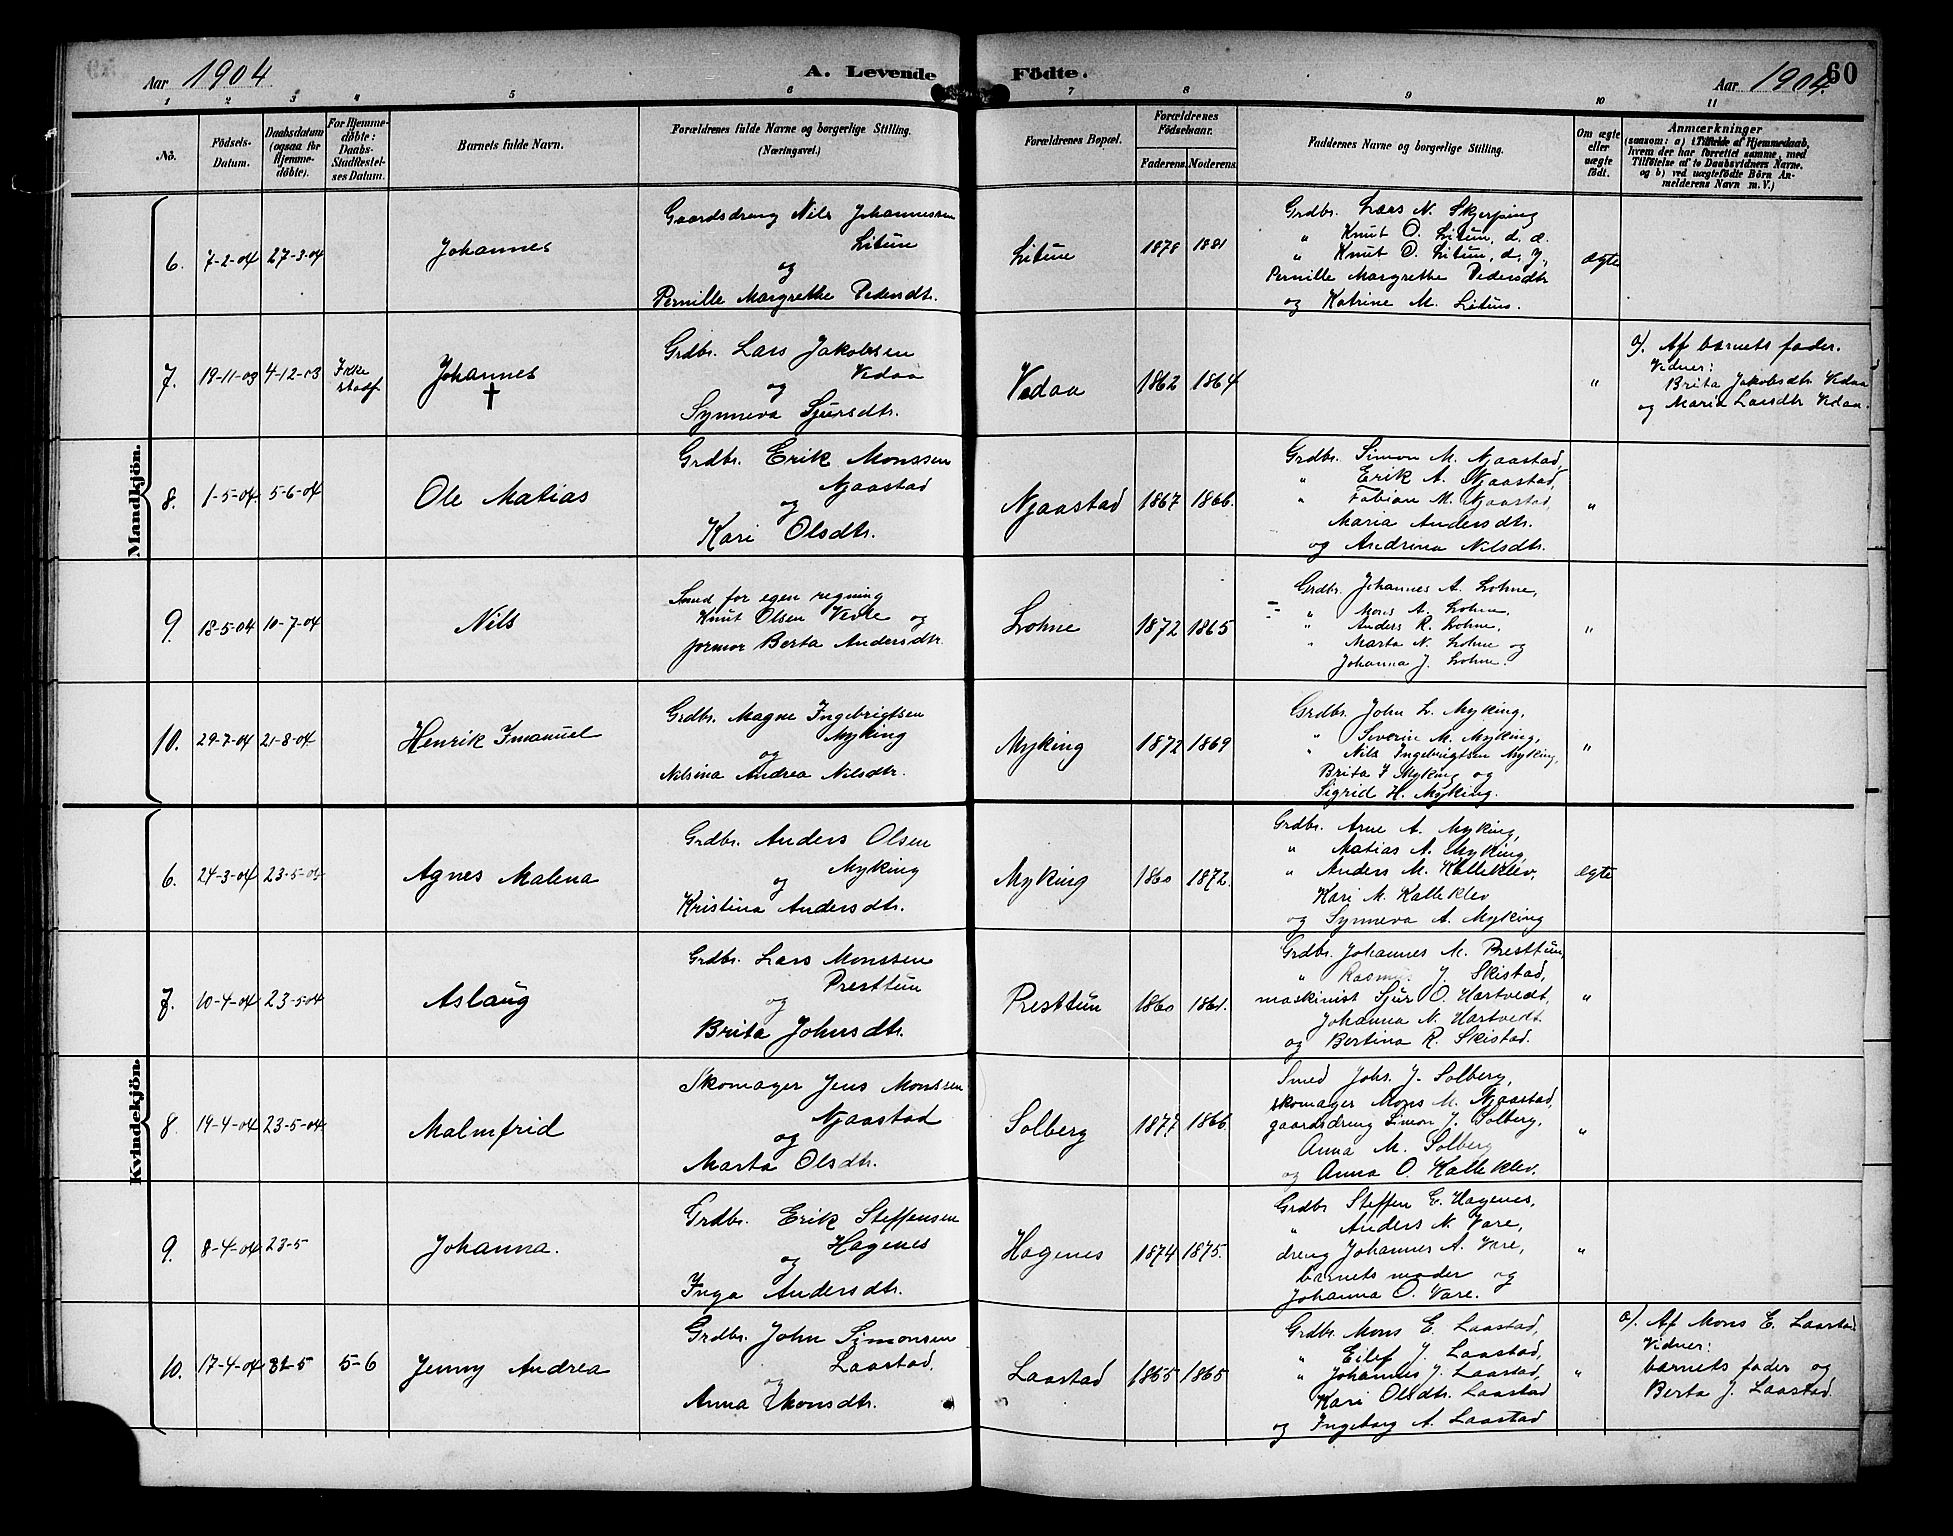 Aar 1904 A. Levende Födte. Aar 1904 60
1 2 3 4 5 6 7 8 9 10 11
No. Födsels-Datum. Daabsdatum (ogsaa for Hjemme-döbte). For Hjemme-döbte: Daabs-Stadfæstel-ses Datum. Barnets fulde Navn. Forældrenes fulde Navne og borgerlige Stilling. (Næringsvei.) Forældrenes Bopæl. Forældrenes Födselsaar. Faderens. Moderens. Faddernes Navne og borgerlige Stilling. Om ægte eller uægte födt. Anmærkninger (saasom: a) i Tilfælde af Hjemmedaab, hvem der har forrettet samme, med Tilföielse af to Daabsvidners Navne. og b) ved uægtefödte Börn An-melderens Navn m. V.)
Mandkjön.
6. 7-2-04 27-3-04 Johannes
Gaardsdreng Nils Johannessen
Litun
og
Pernille Margrethe Pedersdtr.
Litun 1878 1881
Grdbr. Lars N. Skjerping
" Knut O. Litun, d. æ.
" Knut O. Litun, d. y.,
Pernille Margrethe Pedersdtr
og Katrine M. Litun.
ægte
7. 19-11-03 4-12-03 Ikke stadf. Johannes †
Grdbr. Lars Jakobsen
Vedaa
og
Synneva Sjursdtr.
Vedaa 1862 1864
"
a). Af barnets fader.
Vidner:
Brita Jakobsdtr Vedaa
og Maria Larsdtr Vedaa.
8. 1-5-04 5-6-04 Ole Matias
Grdbr. Erik Monssen
Njaastad
og
Kari Olsdtr.
Njaastad 1867 1866.
Grdbr. Simon M. Njaastad,
" Erik A. Njaastad,
" Fabian M. Njaastad,
Maria Andersdtr.
og Andrina Nilsdtr.
"
9. 18-5-04 10-7-04 Nils
Smed for egen regning
Knut Olsen Vevle og
jormor Berta Andersdtr.
Lohne 1872 1865
Grdbr. Johannes A. Lohne,
" Mons A. Lohne,
" Anders R. Lohne,
" Marta N. Lohne og
Johanna J. Lohne.
"
10. 29-7-04 21-8-04 Henrik Imanuel
Grdbr. Magne Ingebrigtsen
Myking
og
Nilsina Andrea Nilsdtr.
Myking 1872 1869
Grdbr. John L. Myking,
" Severin M. Myking,
" Nils Ingebrigtsen Myking,
Brita I Myking og
Sigrid H. Myking.
"
Kvindekjön.
6. 24-3-04 23-5-04 Agnes Malena
Grdbr. Anders Olsen
Myking
og
Kristina Andersdtr.
Myking 1860 1872.
Grdbr. Arne A. Myking,
" Matias A. Myking,
" Anders M. Kalleklev,
Kari M. Kalleklev
og Synneva A. Myking
egte
7. 10-4-04 23-5-04 Aslaug
Grdbr. Lars Monssen
Presttun
og
Brita Johnsdtr.
Presttun 1860 1861.
Grdbr. Johannes M. Presttun,
" Rasmus J. Skistad,
maskinist Sjur O. Hartvedt,
Johanna N. Hartvedt
og Bertina R. Skistad.
"
8. 19-4-04 23-5-04 Malmfrid
Skomager Jens Monssen
Njaastad
og
Marta Olsdtr.
Solberg 1877 1866
Smed Johs. J. Solberg,
skomager Mons M. Njaastad,
gaardsdreng Simon J. Solberg,
Anna M. Solberg
og Anna O. Kalleklev.
"
9. 8-4-04 23-5 Johanna.
Grdbr. Erik Steffensen
Hagenes
og
Inga Andersdtr.
Hagenes 1874 1875.
Grdbr Steffen E. Hagenes,
" Anders N. Vare,
dreng Johannes A. Vare,
barnets moder og
Johanna O. Vare.
"
10. 17-4-04 5-6 Jenny Andrea
Grdbr. John Simonsen
Laastad.
og
Anna Monsdtr.
Laastad 1855 1865
Grdbr. Mons E. Laastad,
" Eilef J. Laastad,
" Johannes J. Laastad,
Kari Olsdtr. Laastad
og Ingeborg A. Laastad
"
a). Af Mons E. Laastad
Vidner:
barnets fader og
Berta J. Laastad.